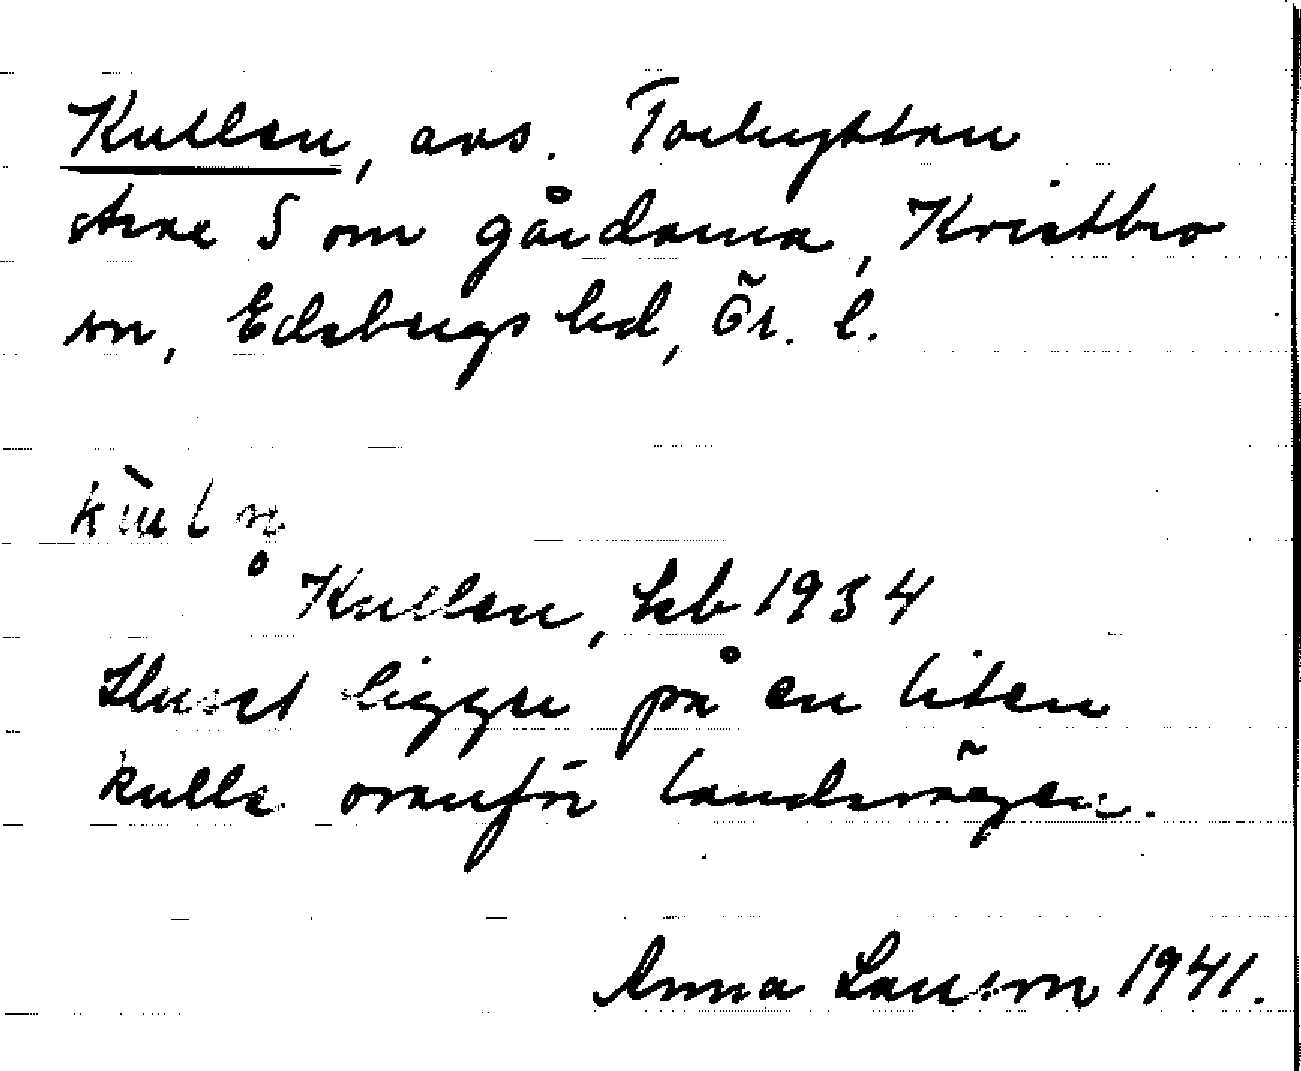 Kullen, avs. Torhyttan
strax S om gårdarna, Kvistbro
sn, Edsbergs hd, Ör. l.
Kullen, hb 1934
Huset ligger på en liten
kulle ovanför landsvägen.
Anna Larsson 1941.